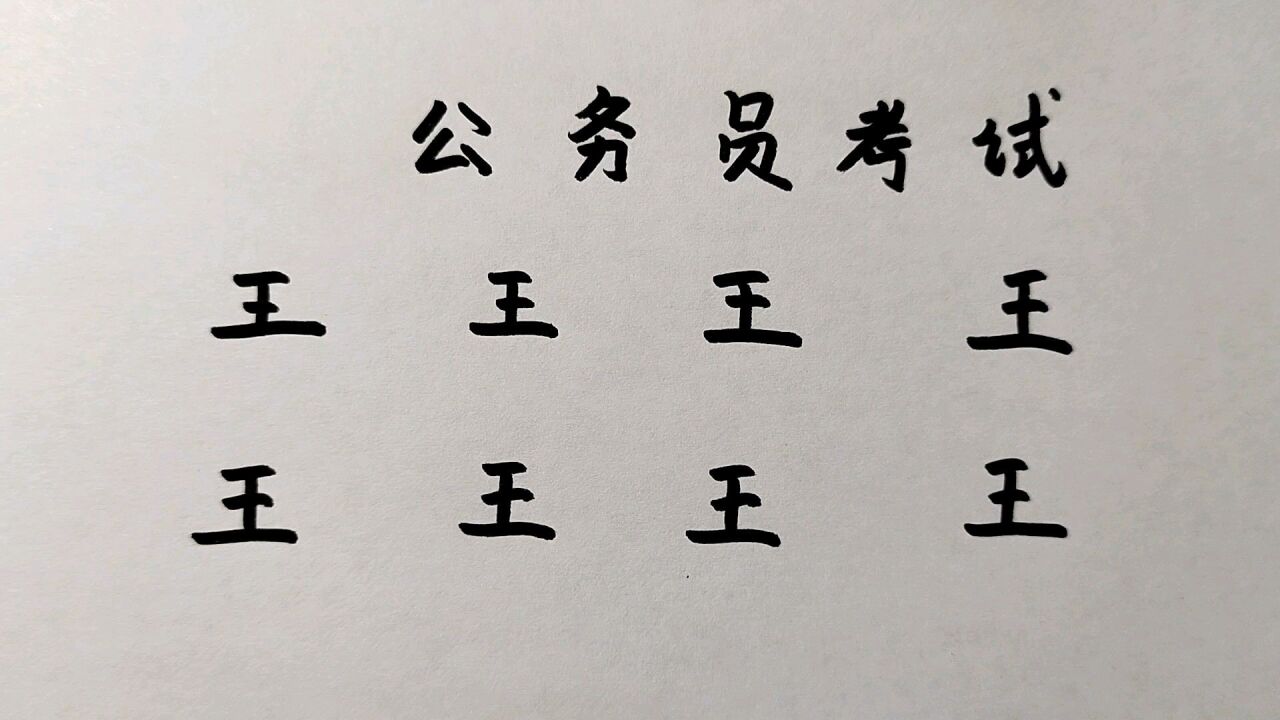 公务员考试
王 王 王 王
王 王 王 王